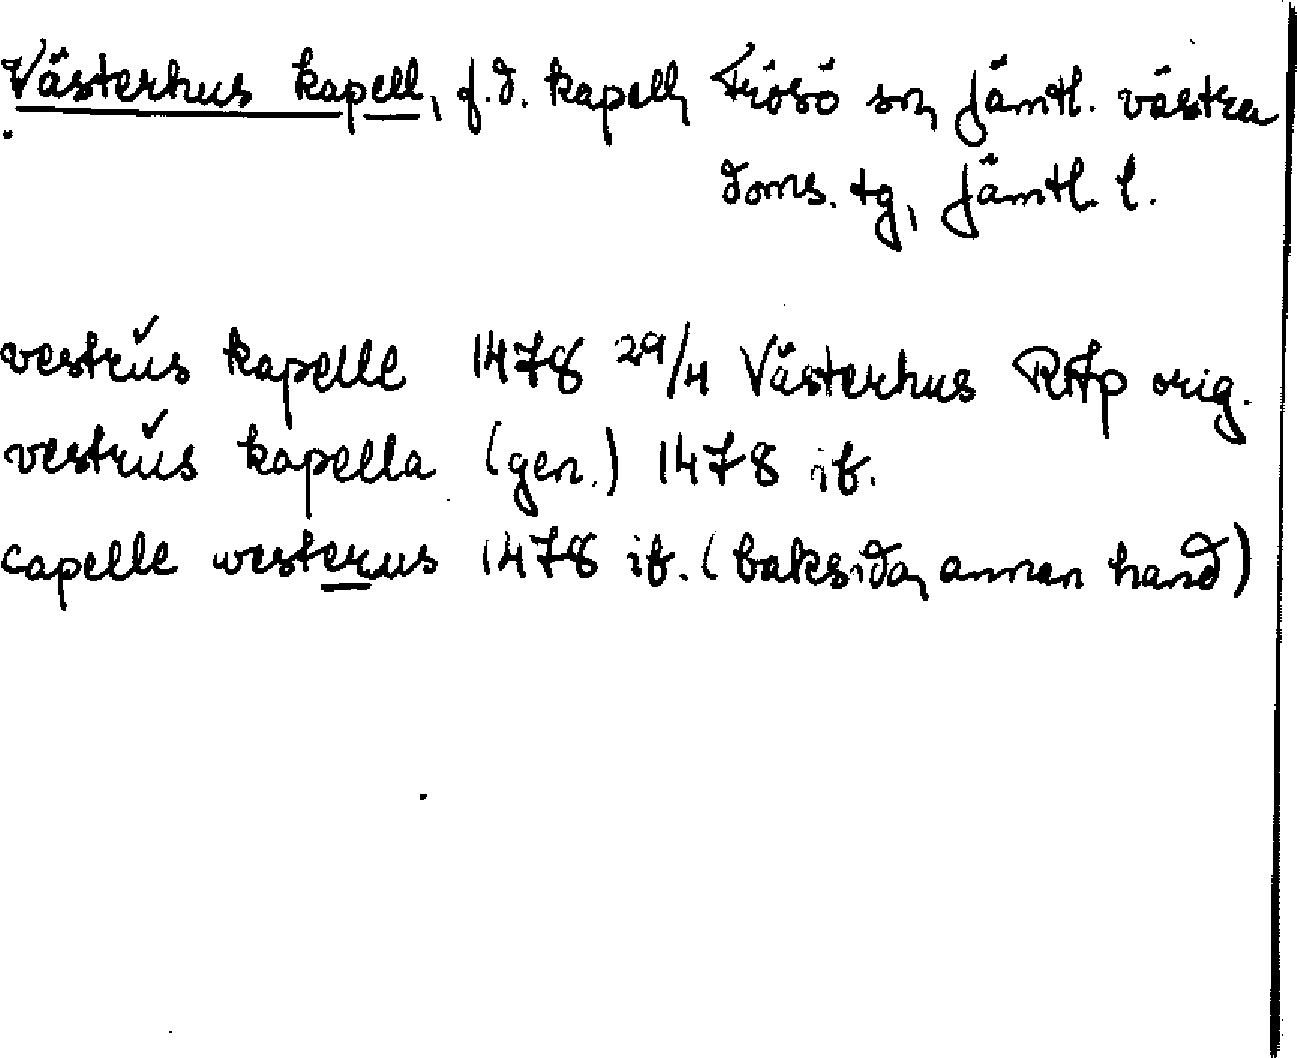 Västerhus kapell, f.d. kapell, Frösö sn, Jämtl. västra
doms. tg, Jämtl. l.
vestrüs kapelle 1478 29/4 Västerhus RAp orig.
vestrüs kapella (gen.) 1478 ib.
capelle westerus 1478 ib. (baksida, annan hand)